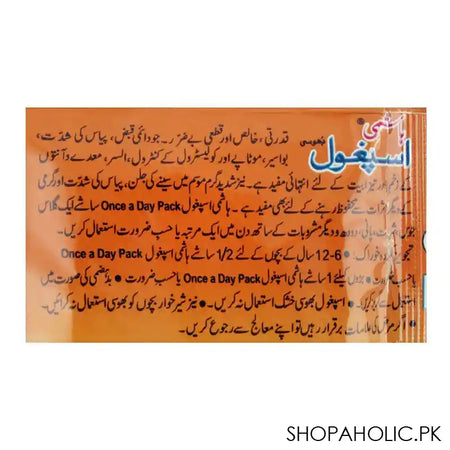 ہاشمی®
اسپغول بھوسی
قدرتی، خالص اور قطعی بے ضرر۔ جو دائمی قبض، پیاس کی شدّت،
بواسیر، موٹاپے اور کولیسٹرول کے کنٹرول، السر، معدے و آنتوں
کے زخم اور تیزابیت کے لئے انتہائی مفید ہے۔ نیز شدید گرم موسم میں سینے کی جلن، پیاس کی شدت اور گرمی
کے اثرات سے محفوظ رہنے کے لئے بھی مفید ہے۔ ہاشمی اسپغول Once a Day Pack ساشے ایک گلاس
جوس، شربت، پانی، دودھ و دیگر مشروبات کے ساتھ دن میں ایک مرتبہ یا حسب ضرورت استعمال کریں۔
تجویز کردہ خوراک: 6-12 سال کے بچوں کے لئے 1/2 ساشے ہاشمی اسپغول Once a Day Pack
یا حسب ضرورت • بڑوں کیلئے 1 ساشے ہاشمی اسپغول Once a Day Pack یا حسب ضرورت۔ • بدہضمی کی صورت میں
استعمال سے پرہیز کریں۔ • اسپغول بھوسی خشک استعمال نہ کریں۔ • نیز شیر خوار بچوں کو بھوسی استعمال نہ کرائیں۔
• اگر مرض کی علامات برقرار رہیں تو اپنے معالج سے رجوع کریں۔
SHOPAHOLIC.PK